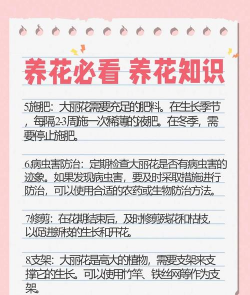 养花必看 养花知识
5.施肥：大丽花需要充足的肥料。在生长季节
，每隔2-3周施一次稀薄的液肥。在冬季，需
要停止施肥。
6.病虫害防治：定期检查大丽花是否有病虫害的
迹象。如果发现病虫害，要及时采取措施进行
防治，可以使用合适的农药或生物防治方法。
7.修剪：在花期结束后，及时修剪残花和枯枝，
以促进新枝的生长和开花。
8.支架：大丽花是高大的植物，需要支架来支
撑它的生长。可以使用竹竿、铁丝网等作为支
架。